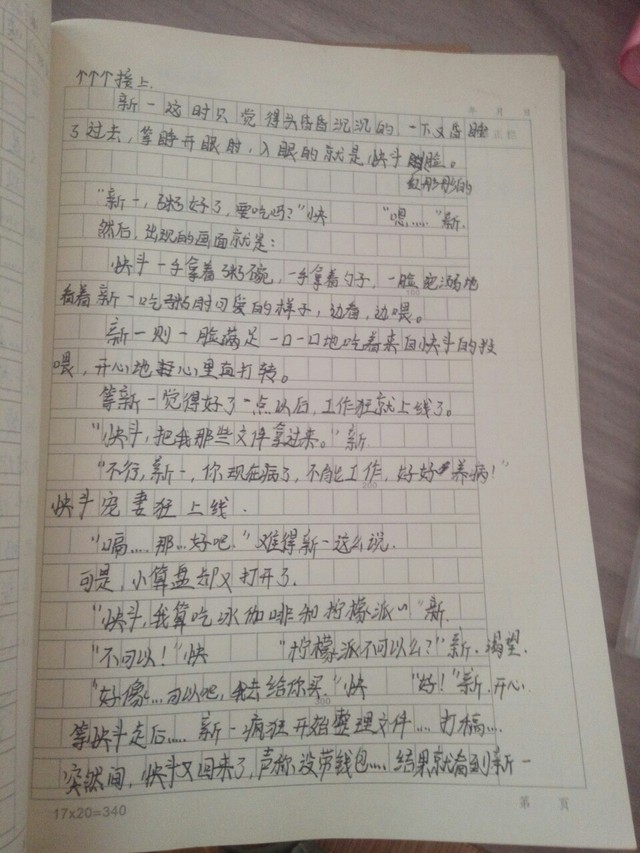 ↑↑↑接上.
年 月 日
新一这时只觉得头昏昏沉沉的,一下又昏睡
正粘
了过去,等睁开眼时,入眼的就是快斗脸。
红彤彤的
"新一,粥好了,要吃吗?"快 "嗯……"新.
然后,出现的画面就是:
快斗一手拿着粥碗,一手拿着勺子,一脸宠溺地
看着新一吃粥时可爱的样子,边看,边喂。
新一则一脸满足一口一口地吃着来自快斗的投
喂,开心地心里直打转。
等新一觉得好了一点以后,工作狂就上线了。
"快斗,把我那些文件拿过来。"新
"不行,新一,你现在病了,不能工作,好好养病!"
200
快斗宠妻狂上线.
"嗝……那…好吧."难得新一这么说.
可是,小算盘却又打开了.
"快斗,我算吃冰咖啡和柠檬派~"新.
"不可以!"快 "柠檬派不可以么?"新.渴望.
"好像…可以吧,我去给你买."快 "好!"新.开心.
300
等快斗走后……新一疯狂开始整理文件……打稿……
突然间,快斗又回来了,声称没带钱包……结果就看到新一
17×20=340
第 页